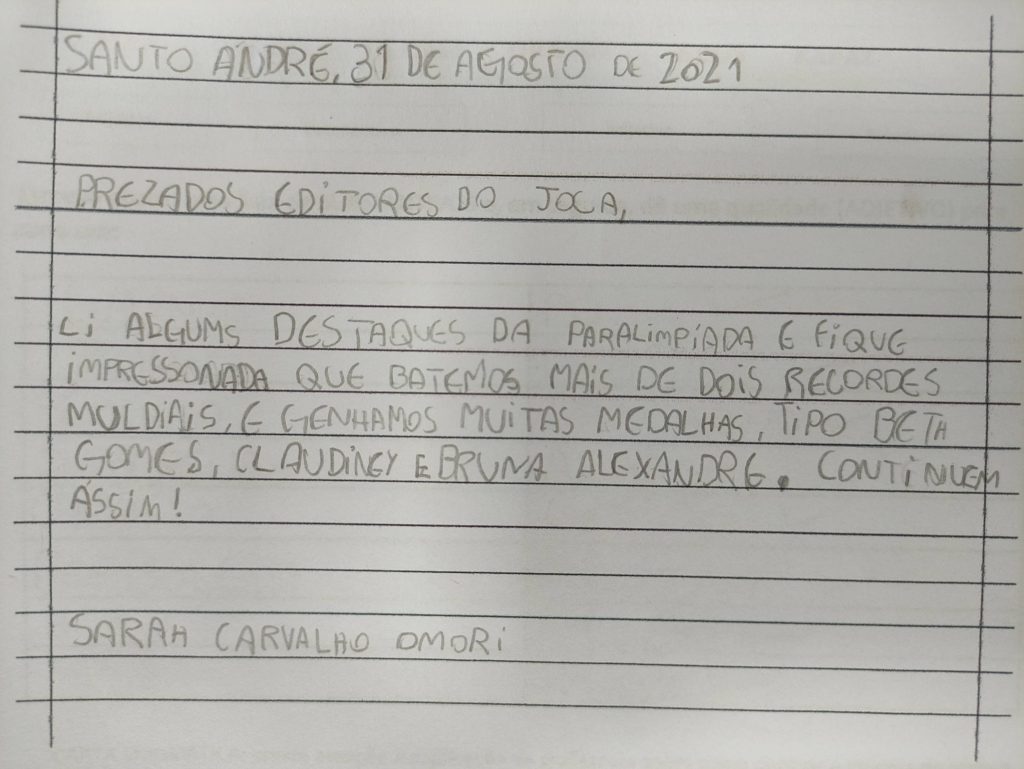 SANTO ANDRÉ, 31 DE AGOSTO DE 2021
PREZADOS EDITORES DO JOCA,
LI ALGUMS DESTAQUES DA PARALIMPÍADA E FIQUE
IMPRESSONADA QUE BATEMOS MAIS DE DOIS RECORDES
MULDIAIS, E GENHAMOS MUITAS MEDALHAS, TIPO BETH
GOMES, CLAUDINEY E BRUNA ALEXANDRE. CONTINUEM
ASSIM!
SARAH CARVALHO OMORI